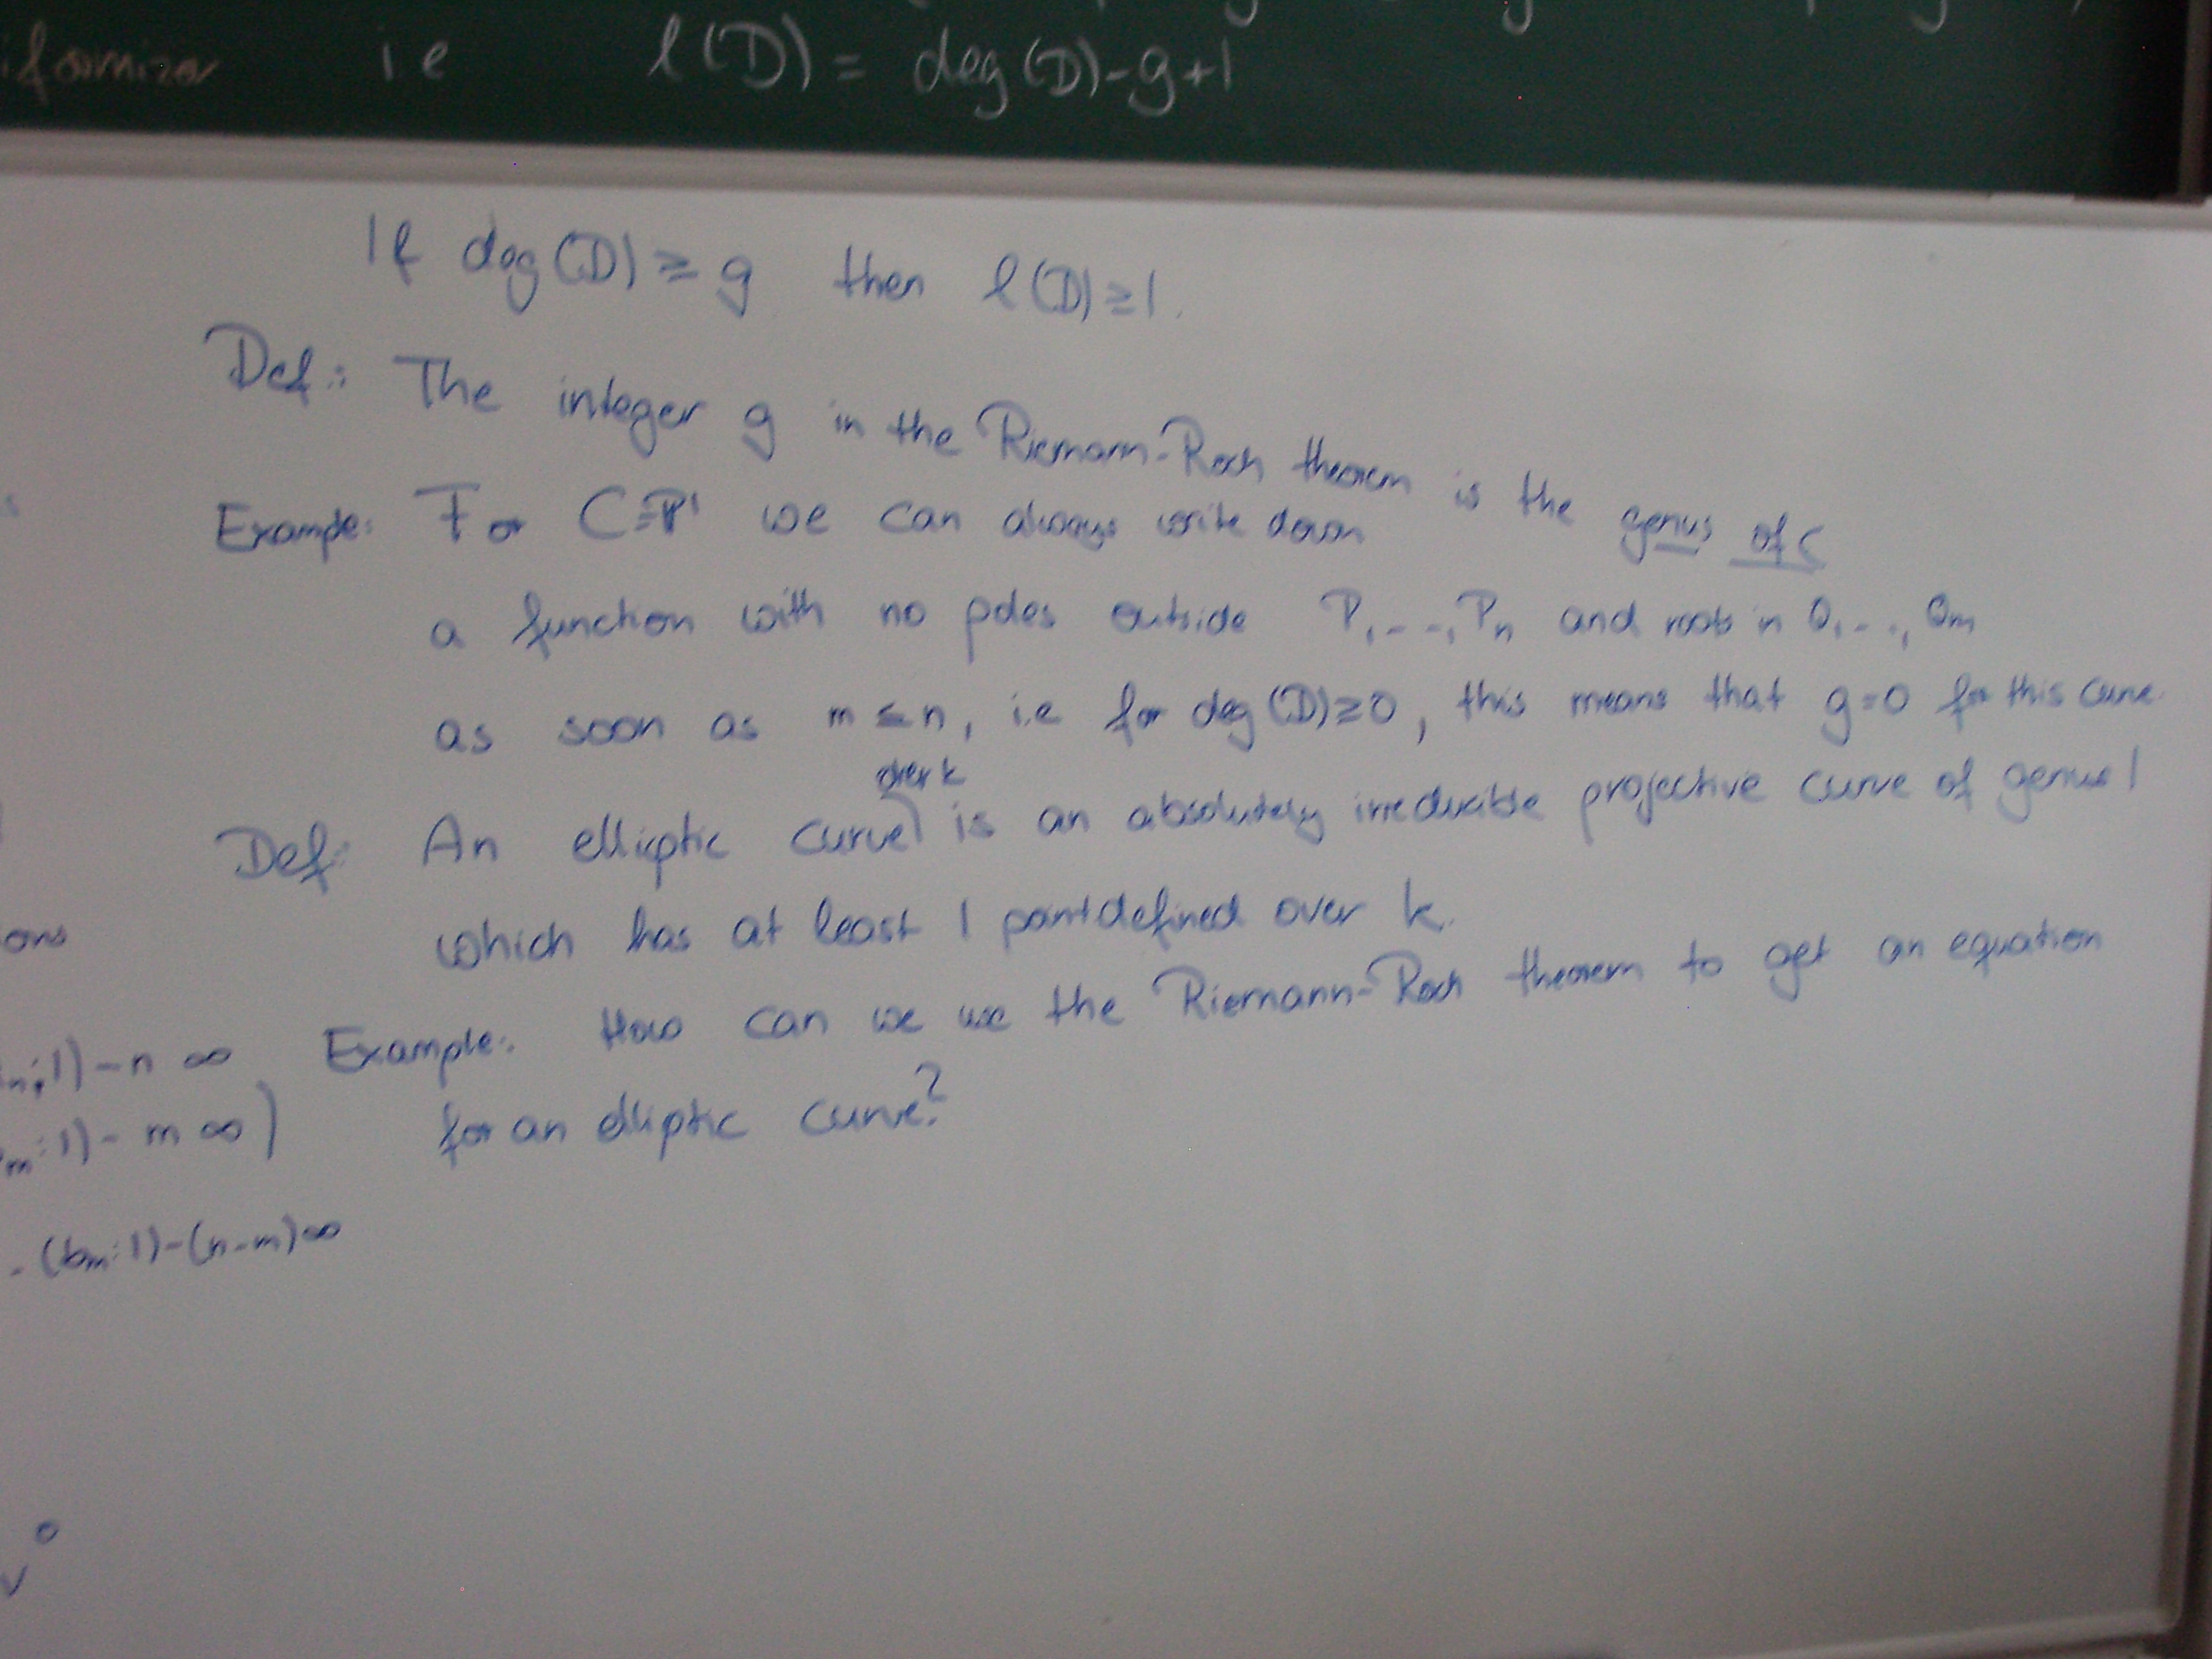 iformizer i e l(D) = deg(D)-g+1
If deg(D) ≥ g then l(D) ≥ 1.
Def.: The integer g in the Riemann-Roch theorem is the genus of C
Example: For C=P¹ we can always write down
a function with no poles outside P₁, ..., Pₙ and roots in Q₁, ..., Qₘ
as soon as m ≤ n, i.e for deg(D) ≥ 0, this means that g=0 for this curve.
over k
Def: An elliptic curve is an absolutely irreducible projective curve of genus 1
which has at least 1 point defined over k.
Example: How can we use the Riemann-Roch theorem to get an equation
for an elliptic curve?
ons
n:1)-n ∞
m:1)-m ∞)
-(bₘ:1)-(n-m)∞